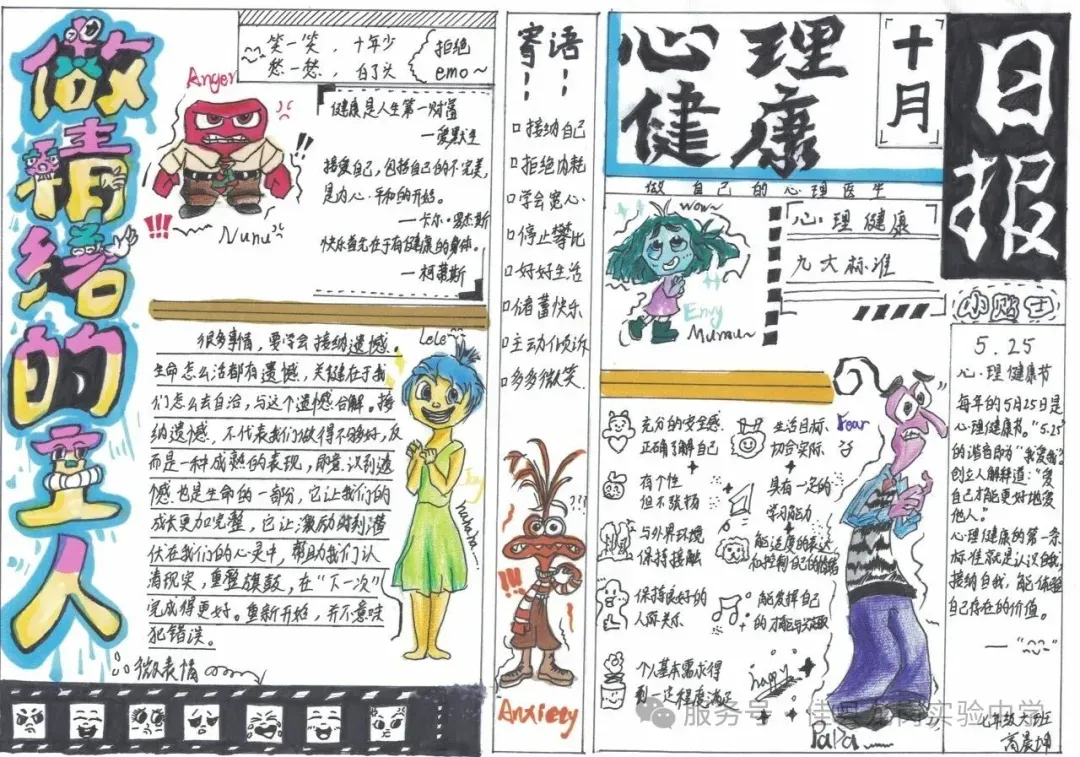 做情绪的主人
笑一笑，十年少
愁一愁，白了头
拒绝
emo~
Anger
Nunu
健康是人生第一财富
—爱默生
接受自己，包括自己的不完美，
是内心平和的开始。
—卡尔·罗杰斯
快乐首先在于有健康的身体。
—柯蒂斯
很多事情，要学会接纳遗憾。
生命怎么活都有遗憾，关键在于我
们怎么去自洽，与这个遗憾合解。接
纳遗憾，不代表我们做得不够好，反
而是一种成熟的表现，即意识到遗
憾也是生命的一部分，它让我们的
成长更加完整，它让激励时刻潜
伏在我们的心灵中，帮助我们认
清现实，重整旗鼓，在“下一次”
完成得更好。重新开始，并不意味
犯错误。
Lele
Joy
hahaha
微表情
寄语
接纳自己
拒绝内耗
学会宽心
停止攀比
好好生活
储蓄快乐
主动倾诉
多多微笑
???
!!!
Anxiety
心理
健康
十月
日报
做自己的心理医生
wow~
Envy
Mumu
心理健康
九大标准
充分的安全感
正确了解自己
生活目标
切合实际
有个性
但不张扬
具有一定的
学习能力
与外界环境
保持接触
能适度的表达
和控制自己的情绪
保持良好的
人际关系
能发挥自己
的才能与兴趣
个人基本需求得
到一定程度满足
happy
Fear
PaPa
小贴士
5.25
心理健康节
每年的5月25日是
心理健康节。“5.25”
的谐音即为“我爱我”
创立人解释道：“爱
自己才能更好地爱
他人”
心理健康的第一条
标准就是认识自我，
接纳自我，能体验
自己存在的价值。
服务号
实验中学
高晨坤